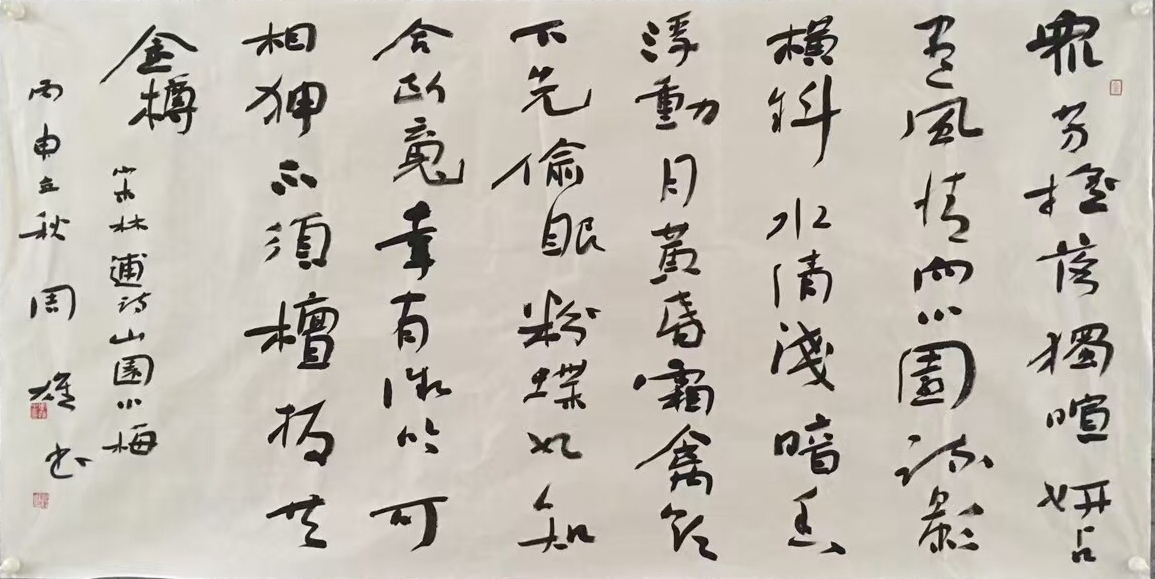 眾芳搖落獨暄妍占
盡風情向小園疏影
橫斜水清淺暗香
浮動月黃昏霜禽欲
下先偷眼粉蝶如知
合断魂幸有微吟可
相狎不須檀板共
金樽
宋林逋诗山園小梅
丙申立秋周雄书